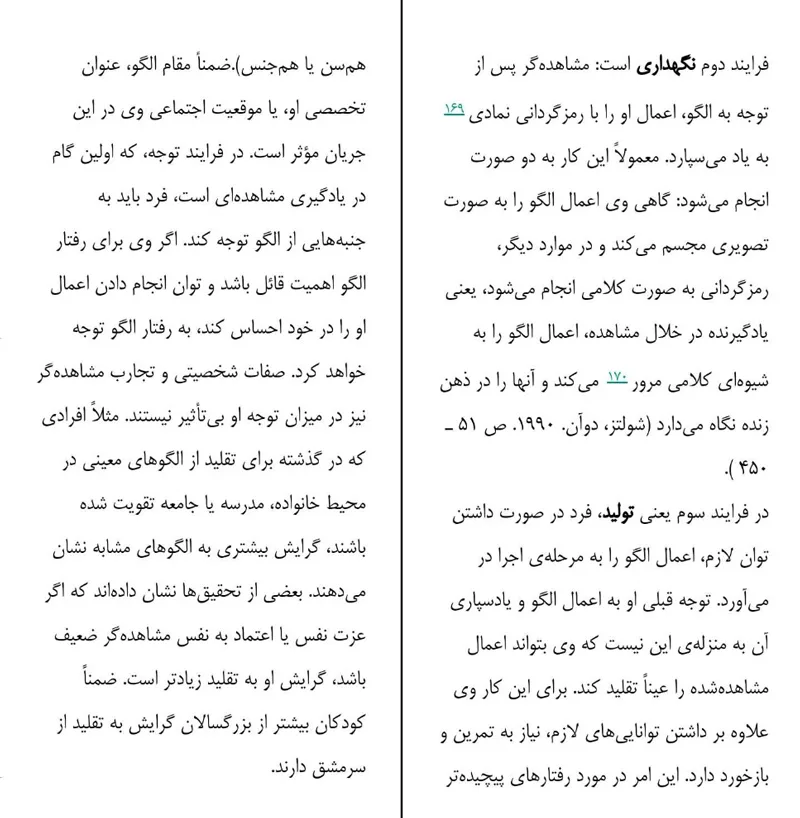 هم‌سن یا هم‌جنس).ضمناً مقام الگو، عنوان
تخصصی او، یا موقعیت اجتماعی وی در این
جریان مؤثر است. در فرایند توجه، که اولین گام
در یادگیری مشاهده‌ای است، فرد باید به
جنبه‌هایی از الگو توجه کند. اگر وی برای رفتار
الگو اهمیت قائل باشد و توان انجام دادن اعمال
او را در خود احساس کند، به رفتار الگو توجه
خواهد کرد. صفات شخصیتی و تجارب مشاهده‌گر
نیز در میزان توجه او بی‌تأثیر نیستند. مثلاً افرادی
که در گذشته برای تقلید از الگوهای معینی در
محیط خانواده، مدرسه یا جامعه تقویت شده
باشند، گرایش بیشتری به الگوهای مشابه نشان
می‌دهند. بعضی از تحقیق‌ها نشان داده‌اند که اگر
عزت نفس یا اعتماد به نفس مشاهده‌گر ضعیف
باشد، گرایش او به تقلید زیادتر است. ضمناً
کودکان بیشتر از بزرگسالان گرایش به تقلید از
سرمشق دارند.
فرایند دوم نگهداری است: مشاهده‌گر پس از
توجه به الگو، اعمال او را با رمزگردانی نمادی ۱۶۹
به یاد می‌سپارد. معمولاً این کار به دو صورت
انجام می‌شود: گاهی وی اعمال الگو را به صورت
تصویری مجسم می‌کند و در موارد دیگر،
رمزگردانی به صورت کلامی انجام می‌شود، یعنی
یادگیرنده در خلال مشاهده، اعمال الگو را به
شیوه‌ای کلامی مرور ۱۷۰ می‌کند و آنها را در ذهن
زنده نگاه می‌دارد (شولتز، دوآن. ۱۹۹۰. ص ۵۱ ـ
۴۵۰ ).
در فرایند سوم یعنی تولید، فرد در صورت داشتن
توان لازم، اعمال الگو را به مرحله‌ی اجرا در
می‌آورد. توجه قبلی او به اعمال الگو و یادسپاری
آن به منزله‌ی این نیست که وی بتواند اعمال
مشاهده‌شده را عیناً تقلید کند. برای این کار وی
علاوه بر داشتن توانایی‌های لازم، نیاز به تمرین و
بازخورد دارد. این امر در مورد رفتارهای پیچیده‌تر